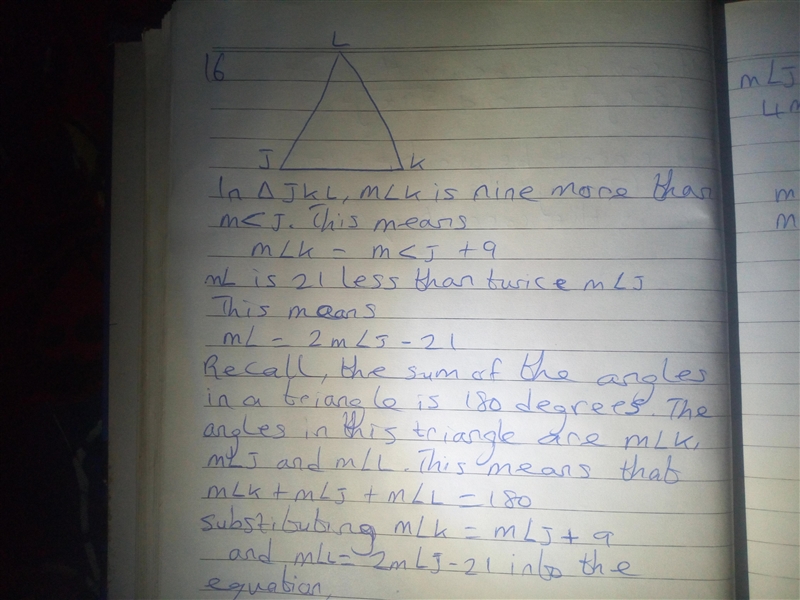 L
16
J K
In △JKL, m∠K is nine more than
m<J. This means
m∠K = m<J + 9
mL is 21 less than twice m∠J
This means
mL = 2m∠J - 21
Recall, the sum of the angles
in a triangle is 180 degrees. The
angles in this triangle are m∠K,
m∠J and m∠L. This means that
m∠K + m∠J + m∠L = 180
substituting m∠K = m∠J + 9
and m∠L = 2m∠J - 21 into the
equation,
m∠J
4m
m
m